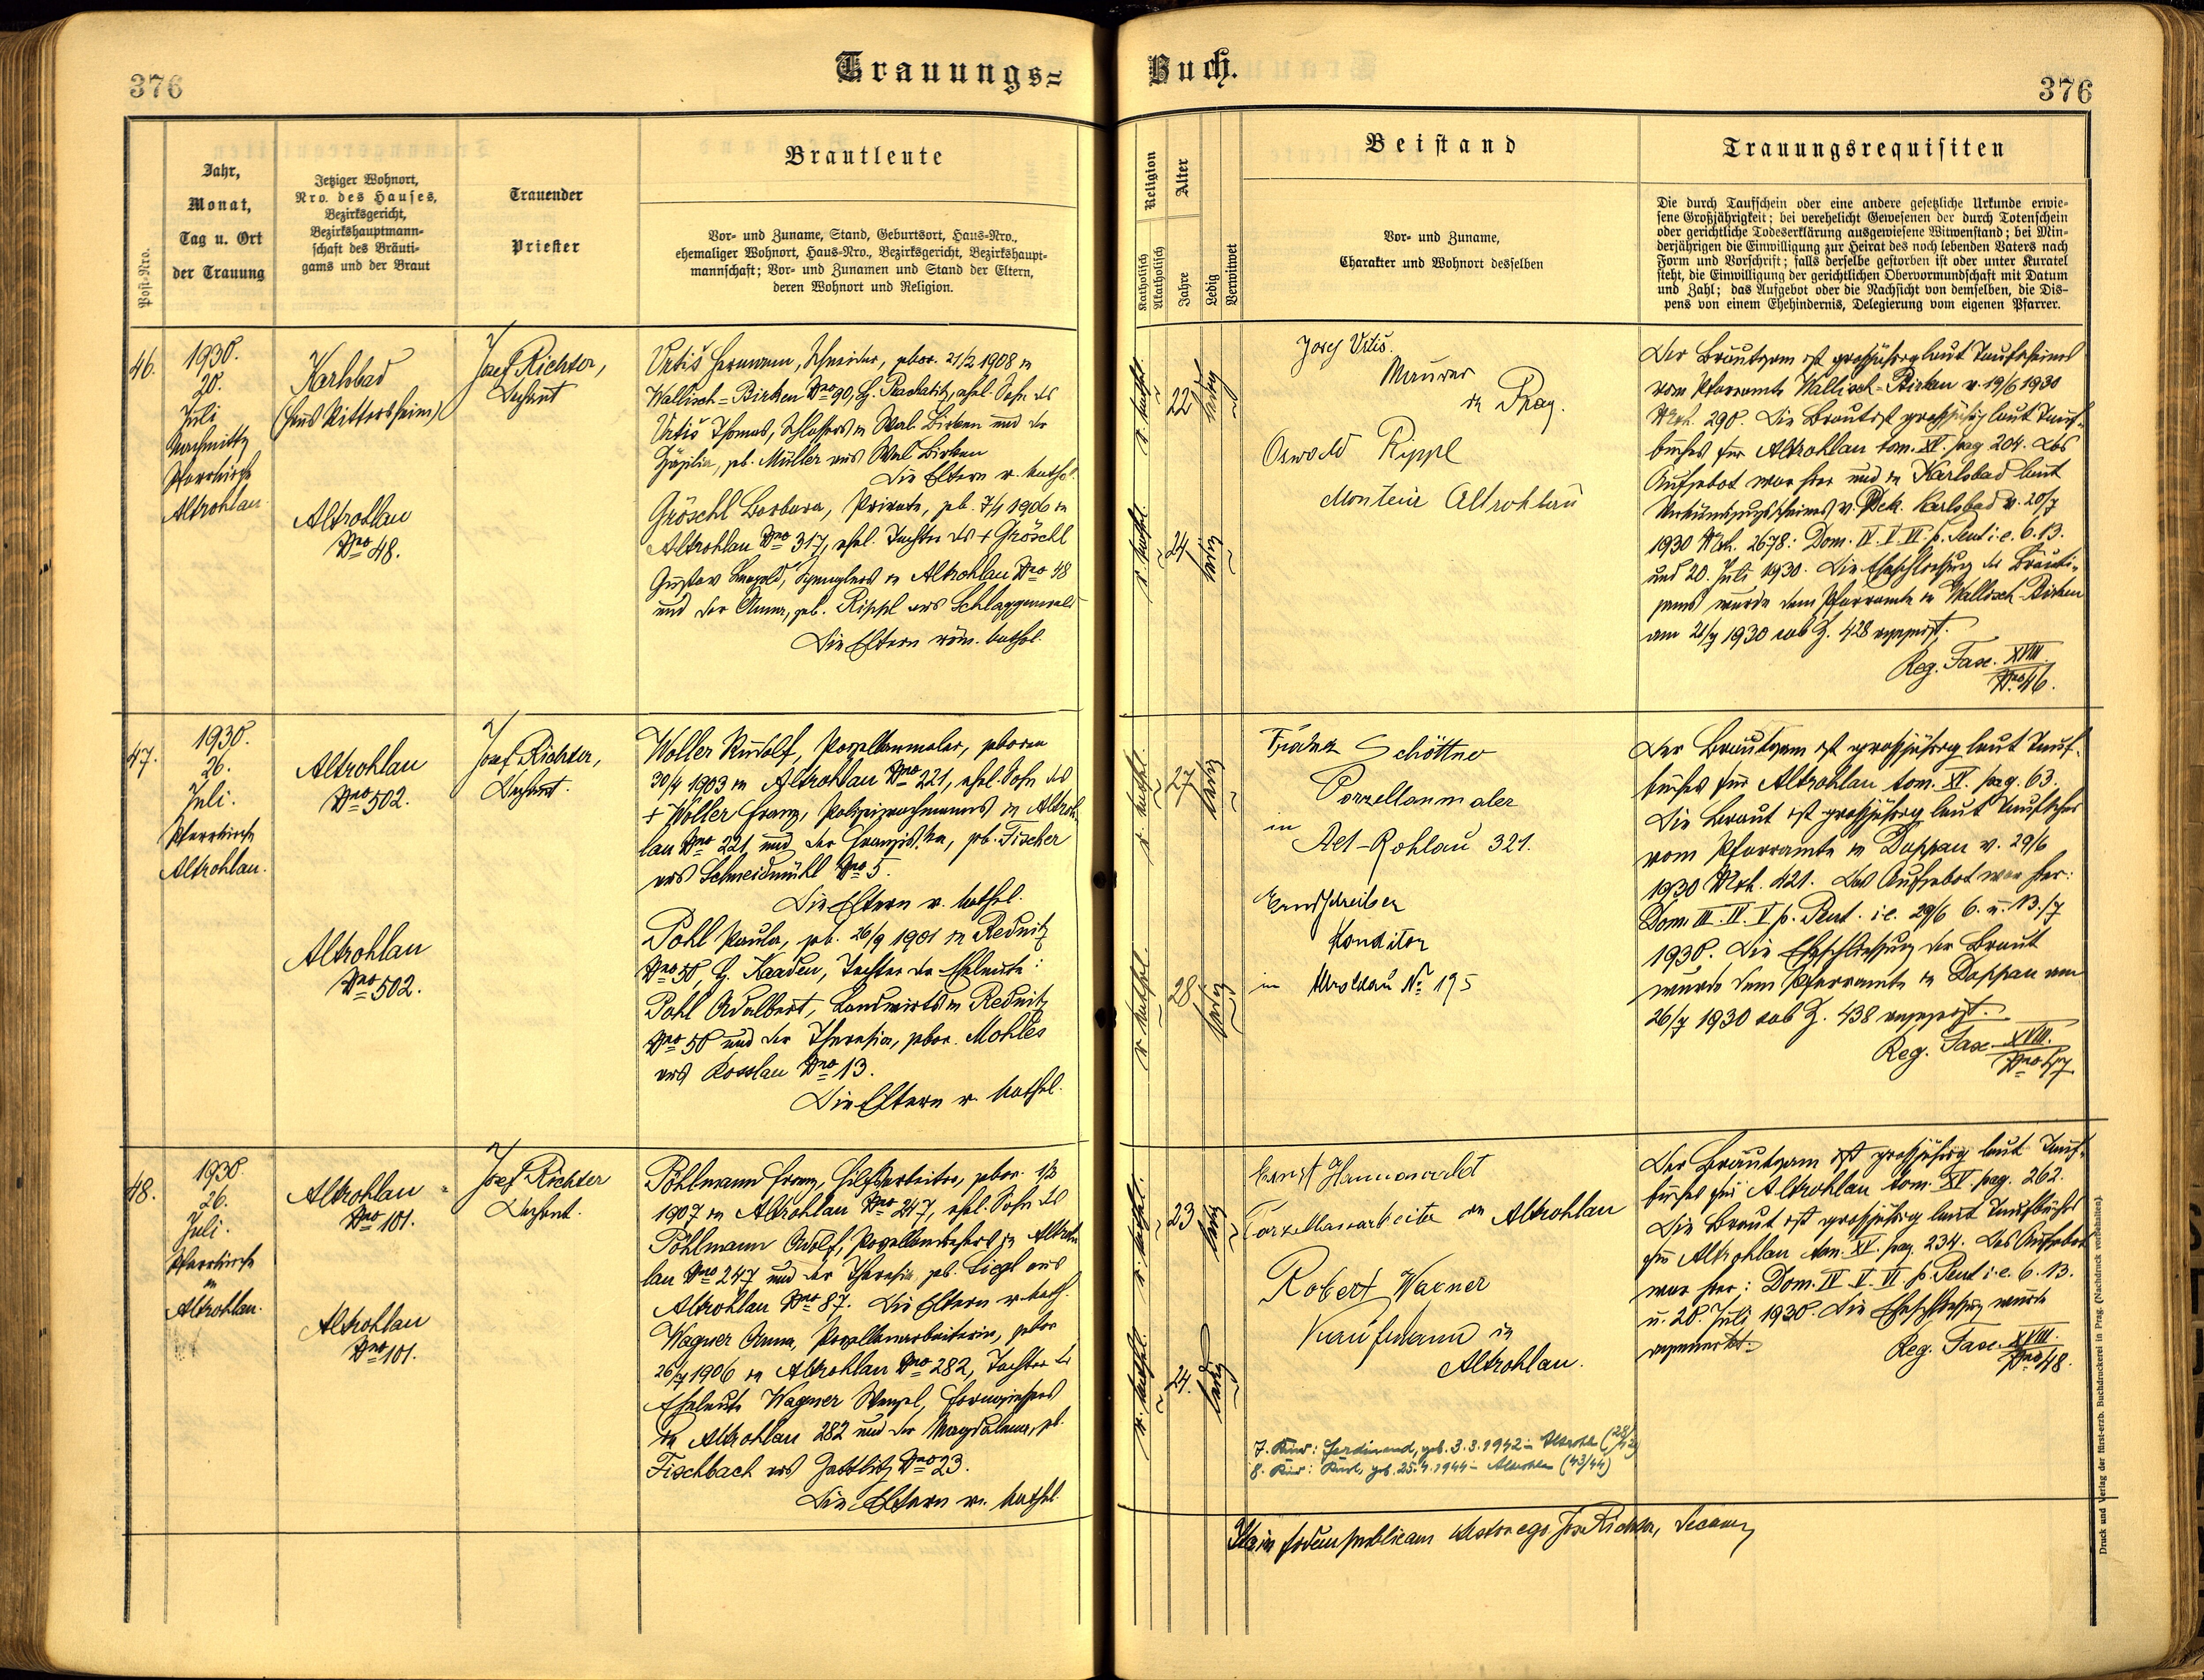 376
Trauungs=
Buch.
376
Post-Nro.
Jahr,
Monat,
Tag u. Ort
der Trauung
Jetziger Wohnort,
Nro. des Hauses,
Bezirksgericht,
Bezirkshauptmann-
schaft des Bräuti-
gams und der Braut
Trauender
Priester
Brautleute
Vor- und Zuname, Stand, Geburtsort, Haus-Nro.,
ehemaliger Wohnort, Haus-Nro., Bezirksgericht, Bezirkshaupt-
mannschaft; Vor- und Zunamen und Stand der Eltern,
deren Wohnort und Religion.
Religion
Katholisch
Akatholisch
Alter
Jahre
Ledig
Verwitwet
Beistand
Vor- und Zuname,
Charakter und Wohnort desselben
Trauungsrequisiten
Die durch Taufschein oder eine andere gesetzliche Urkunde erwie-
sene Großjährigkeit; bei verehelicht Gewesenen der durch Totenschein
oder gerichtliche Todeserklärung ausgewiesene Witwenstand; bei Min-
derjährigen die Einwilligung zur Heirat des noch lebenden Vaters nach
Form und Vorschrift; falls derselbe gestorben ist oder unter Kuratel
steht, die Einwilligung der gerichtlichen Obervormundschaft mit Datum
und Zahl; das Aufgebot oder die Nachsicht von demselben, die Dis-
pens von einem Ehehindernis, Delegierung vom eigenen Pfarrer.
46.
1930.
20.
Juli
Nachmittg
Pfarrkirche
Altrohlau
Karlsbad
(Haus Rittersheim)
Altrohlau
Nro 48.
Josef Richter,
Dechant
Vrtiš Hermann, Schneider, gebor. 21/2 1908 in
Wallisch-Birken Nro 90, H. Prachatitz, ehel. Sohn des
Vrtiš Thomas, Schlossers in Wal. Birken und der
Zäzilia, geb. Müller aus Wal. Birken
Die Eltern r. kathol.
Gröschl Barbara, Private, geb. 7/4 1906 in
Altrohlau Nro 317, ehel. Tochter des + Gröschl
Gustav Leopold, Spenglers in Altrohlau Nro 48
und der Anna, geb. Rippl aus Schlaggenwald
Die Eltern röm. kathol.
r. kathol.
22
ledig
r. kathol.
24
ledig
Josef Vrtiš.
Maurer
in Prag.
Oswald Rippl
Monteur Altrohlau
Der Bräutigam ist großjährig laut Taufscheines
vom Pfarramte Wallisch-Birken v. 19/6 1930
Mrk. 290. Die Braut ist großjährig laut Tauf-
buches für Altrohlau tom. XV. pag 204. Das
Aufgebot war hier und in Karlsbad laut
Verkündigungsscheines v. Dek. Karlsbad v. 20/7
1930 Mrk. 2678: Dom. IV. V. VI. p. Pent i. e. 6. 13.
und 20. Juli 1930. Die Eheschließung des Bräuti-
gams wurde dem Pfarramte in Wallisch-Birken
am 21/7 1930 sub Z. 428 angezeigt.
Reg. Fasc. XVIII.
Nro 46.
47.
1930.
26.
Juli.
Pfarrkirche
Altrohlau.
Altrohlau
Nro 502.
Altrohlau
Nro 502.
Josef Richter,
Dechant.
Woller Rudolf, Porzellanmaler, geboren
30/4 1903 in Altrohlau Nro 221, ehel. Sohn des
+ Woller Franz, Polizeiwachmanns in Altroh-
lau Nro 221 und der Franziska, geb. Fischer
aus Schneidmühl Nro 5.
Die Eltern r. kathol.
Pohl Paula, geb. 26/9 1901 in Rednitz
Nro 50, H. Kaaden, Tochter der Eheleute:
Pohl Adalbert, Landwirts in Rednitz
Nro 50 und der Theresia, gebor. Mohles
aus Kosslau Nro 13.
Die Eltern r. kathol.
r. kathol.
27
ledig
r. kathol.
28
ledig
Schöttner
Porzellanmaler
in
Alt-Rohlau 321.
Konditor
in Altrohlau No 195
Der Bräutigam ist großjährig laut Tauf-
buches für Altrohlau tom. XV. pag. 63.
Die Braut ist großjährig laut Taufscheines
vom Pfarramte in Duppau v. 29/6
1930 Mrk. 421. Das Aufgebot war hier:
Dom. III. IV. V p. Pent. i. e. 29/6 6. u. 13./7
1930. Die Eheschließung der Braut
wurde dem Pfarramte in Duppau am
26/7 1930 sub Z. 438 angezeigt.
Reg. Fasc. XVIII.
Nro 47
48.
1930.
26.
Juli.
Pfarrkirche
in
Altrohlau.
Altrohlau
Nro 101.
Altrohlau
Nro 101.
Josef Richter
Dechant.
Pöhlmann Franz, Hilfsarbeiter, gebor.
1907 in Altrohlau Nro 247, ehel. Sohn des
Pöhlmann Adolf, Porzellandrehers in Altroh-
lau Nro 247 und der Theresia geb. Liegl aus
Altrohlau Nro 87. Die Eltern r. kath.
Wagner Anna, Porzellanarbeiterin, gebor
26/4 1906 in Altrohlau Nro 282, Tochter der
Eheleute Wagner Wenzel, Formgiessers
in Altrohlau 282 und der Magdalena, geb.
Fischbach aus Zettlitz Nro 23.
Die Eltern r. kathol.
r. kathol.
23
ledig
r. kathol.
24.
ledig
Ernst Hannawald
Porzellanarbeiter in Altrohlau
Robert Wagner
Kaufmann in
Altrohlau.
7. Kind: Ferdinand, geb. 3.3.1942 in Altrohlau
8. Kind: Karl, geb. 25.4.1944 in Altrohlau (43/44)
Der Bräutigam ist großjährig laut Tauf-
buches für Altrohlau tom. XV. pag. 262.
Die Braut ist großjährig laut Taufbuches
für Altrohlau tom. XV. pag. 234. Das Aufgebot
war hier: Dom. IV. V. VI. p. Pent i. e. 6. 13.
u. 20. Juli 1930. Die Eheschließung wurde
angemerkt.
Reg. Fasc. XVIII.
Nro 48.
Ita in fidem publicam testor ego Jos. Richter, Decanus
Druck und Verlag der fürst-erzb. Buchdruckerei in Prag. (Nachdruck vorbehalten)